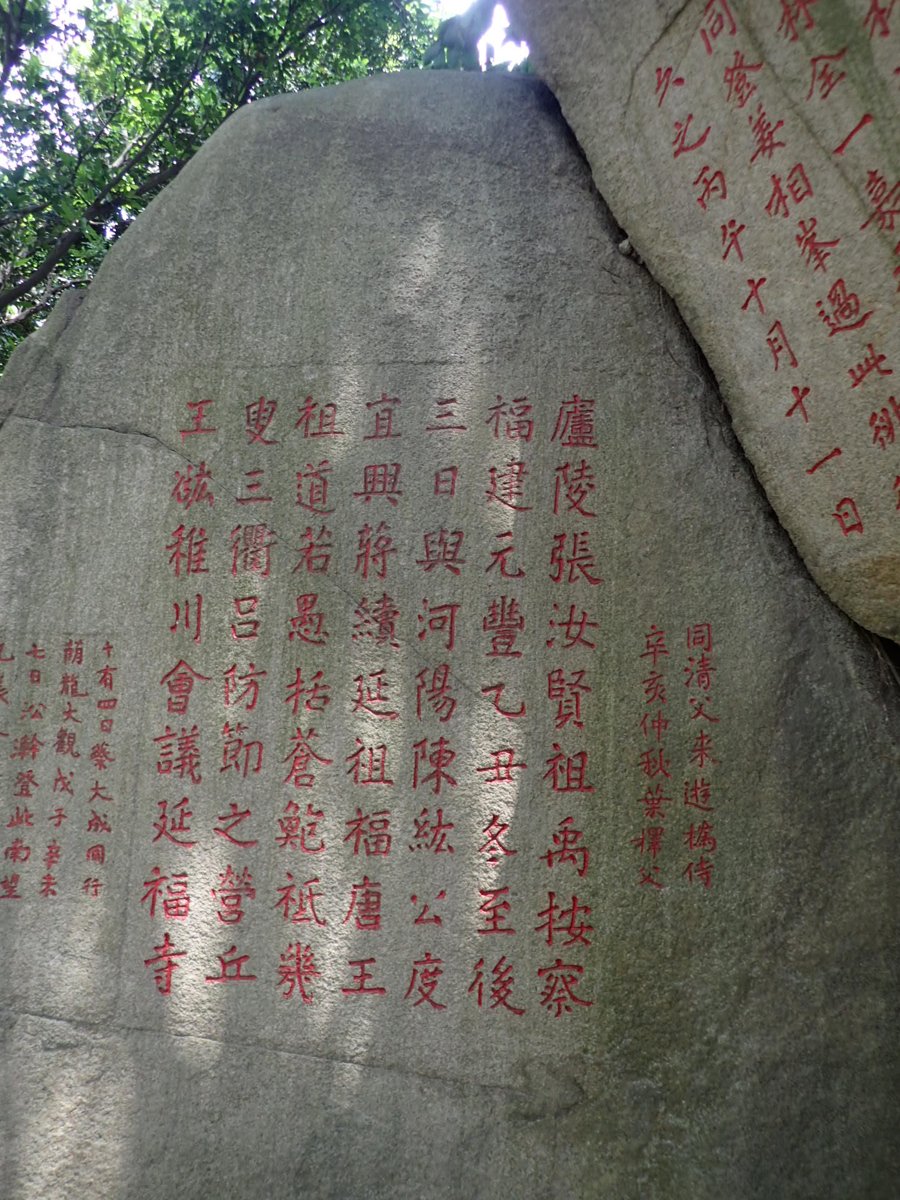 同登兼相峯過此
六之丙午十月十一日
同清父来遊櫾侍
辛亥仲秋葉擇父
廬陵張汝賢祖禹按察
福建元豐乙丑冬至後
三日與河陽陳紘公度
宜興蔣續延祖福唐王
祖道若愚括蒼鮑祗幾
叟三衢吕防節之營丘
王裗稚川會議延福寺
十有四日祭大成同行
七日登此南望